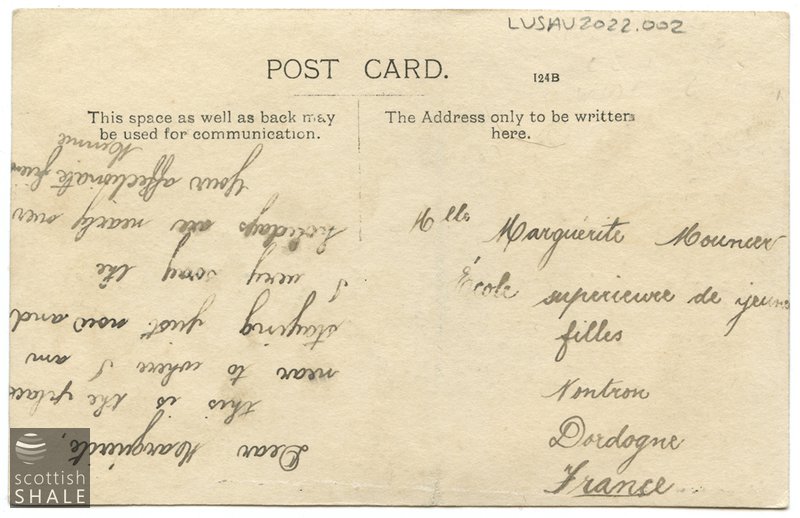 LUSAU2022.002
POST CARD.
124B
This space as well as back may
be used for communication.
The Address only to be written
here.
Dear Marguérite,
this is the place
near to where I am
staying just now and
I very sorry the
holidays are nearly over
Your affectionate friend
Minnie
Mlle Marguérite Mounier
École superieure de jeunes
filles
Nontron
Dordogne
France
scottish
SHALE